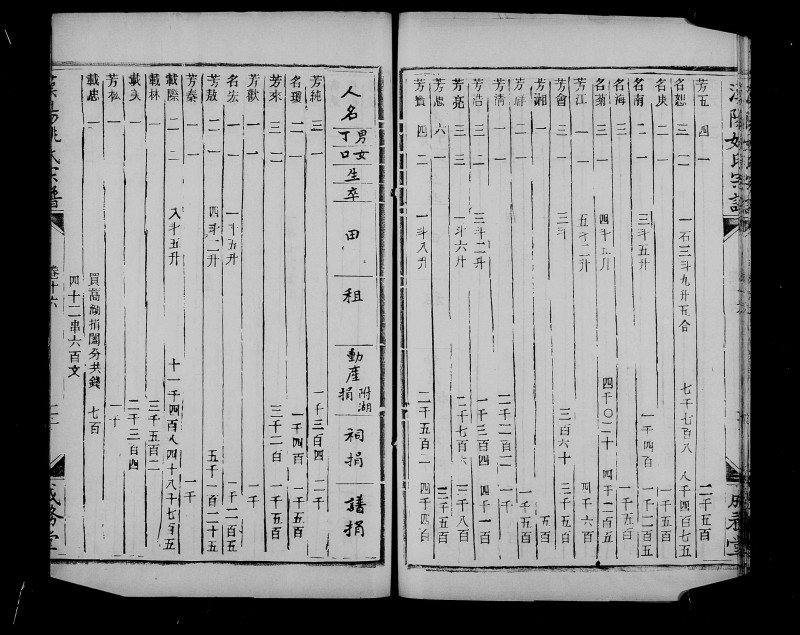 芳五 四 一 二千五百
名恕 三 二 一石三斗九升五合 七千七百八 八千四百七五
名庚 二 一 一千五百
名南 二 一 三斗五升 一千四百 一千二百五
名海 三 一千五百
名菊 三 一 四斗五升 四千〇二十 四千二百五
芳江 一 一 五斗二升 四千六百
芳會 三 一 三斗 三百六十 三千五百
芳湘 一 五百
芳群 二 一 一千五百
芳清 一 一 二千二百二 一千
芳浩 三 二 三斗二升 一千三百四 四千一百
芳亮 三 三 一斗六升 二千七百六 三千八百
芳思 六 一 三千五百
芳實 四 二 一斗八升 二千五百一 四千四百
人名 男丁 女口 生卒 田 租 動產捐 附湖 祠捐 譜捐
芳純 三 一 一千三百四 二千
名瓊 二 一 一千四百 一千五百
芳來 三 二 三千二百 一千五百
芳歡 一 一 一千
名宏 一 一 一斗五升 一千二百五
芳敖 二 一 四斗二升 五千一百二十五
芳秦 一 一千
載際 二 二 八斗五升 十一千四百八 四十八千七百五
載林 一 三千五百二
載美 一 二千三百四
芳松 一 一千
載忠 一 買蒿湖捐閣分共錢 七百
四十二串六百文
姚氏宗譜
卷十六